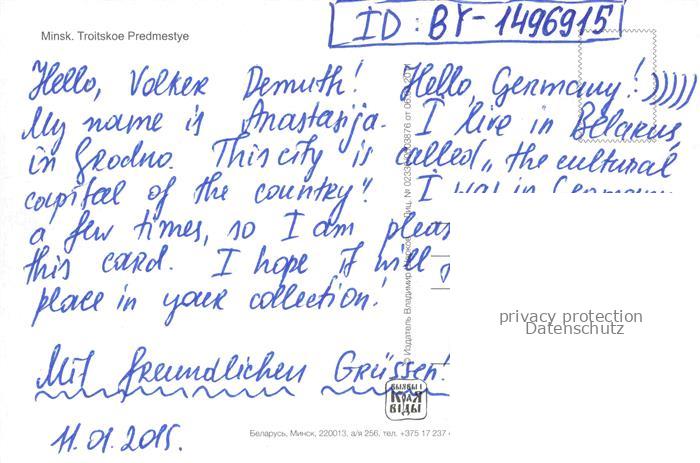 ID: BY-1496915
Minsk. Troitskoe Predmestye
Hello, Volker Demuth! Hello, Germany! :)))))
My name is Anastasija. I live in Belarus,
in Grodno. This city is called „the cultural
capital of the country". I was in Germany
a few times, so I am
this card. I hope it will
place in your collection!
Mit freundlichen Grüssen!
11.01.2015.
privacy protection
Datenschutz
КРАЯ
ВІДЫ
Беларусь, Минск, 220013, а/я 256, тел. +375 17 237
Издатель Владимир